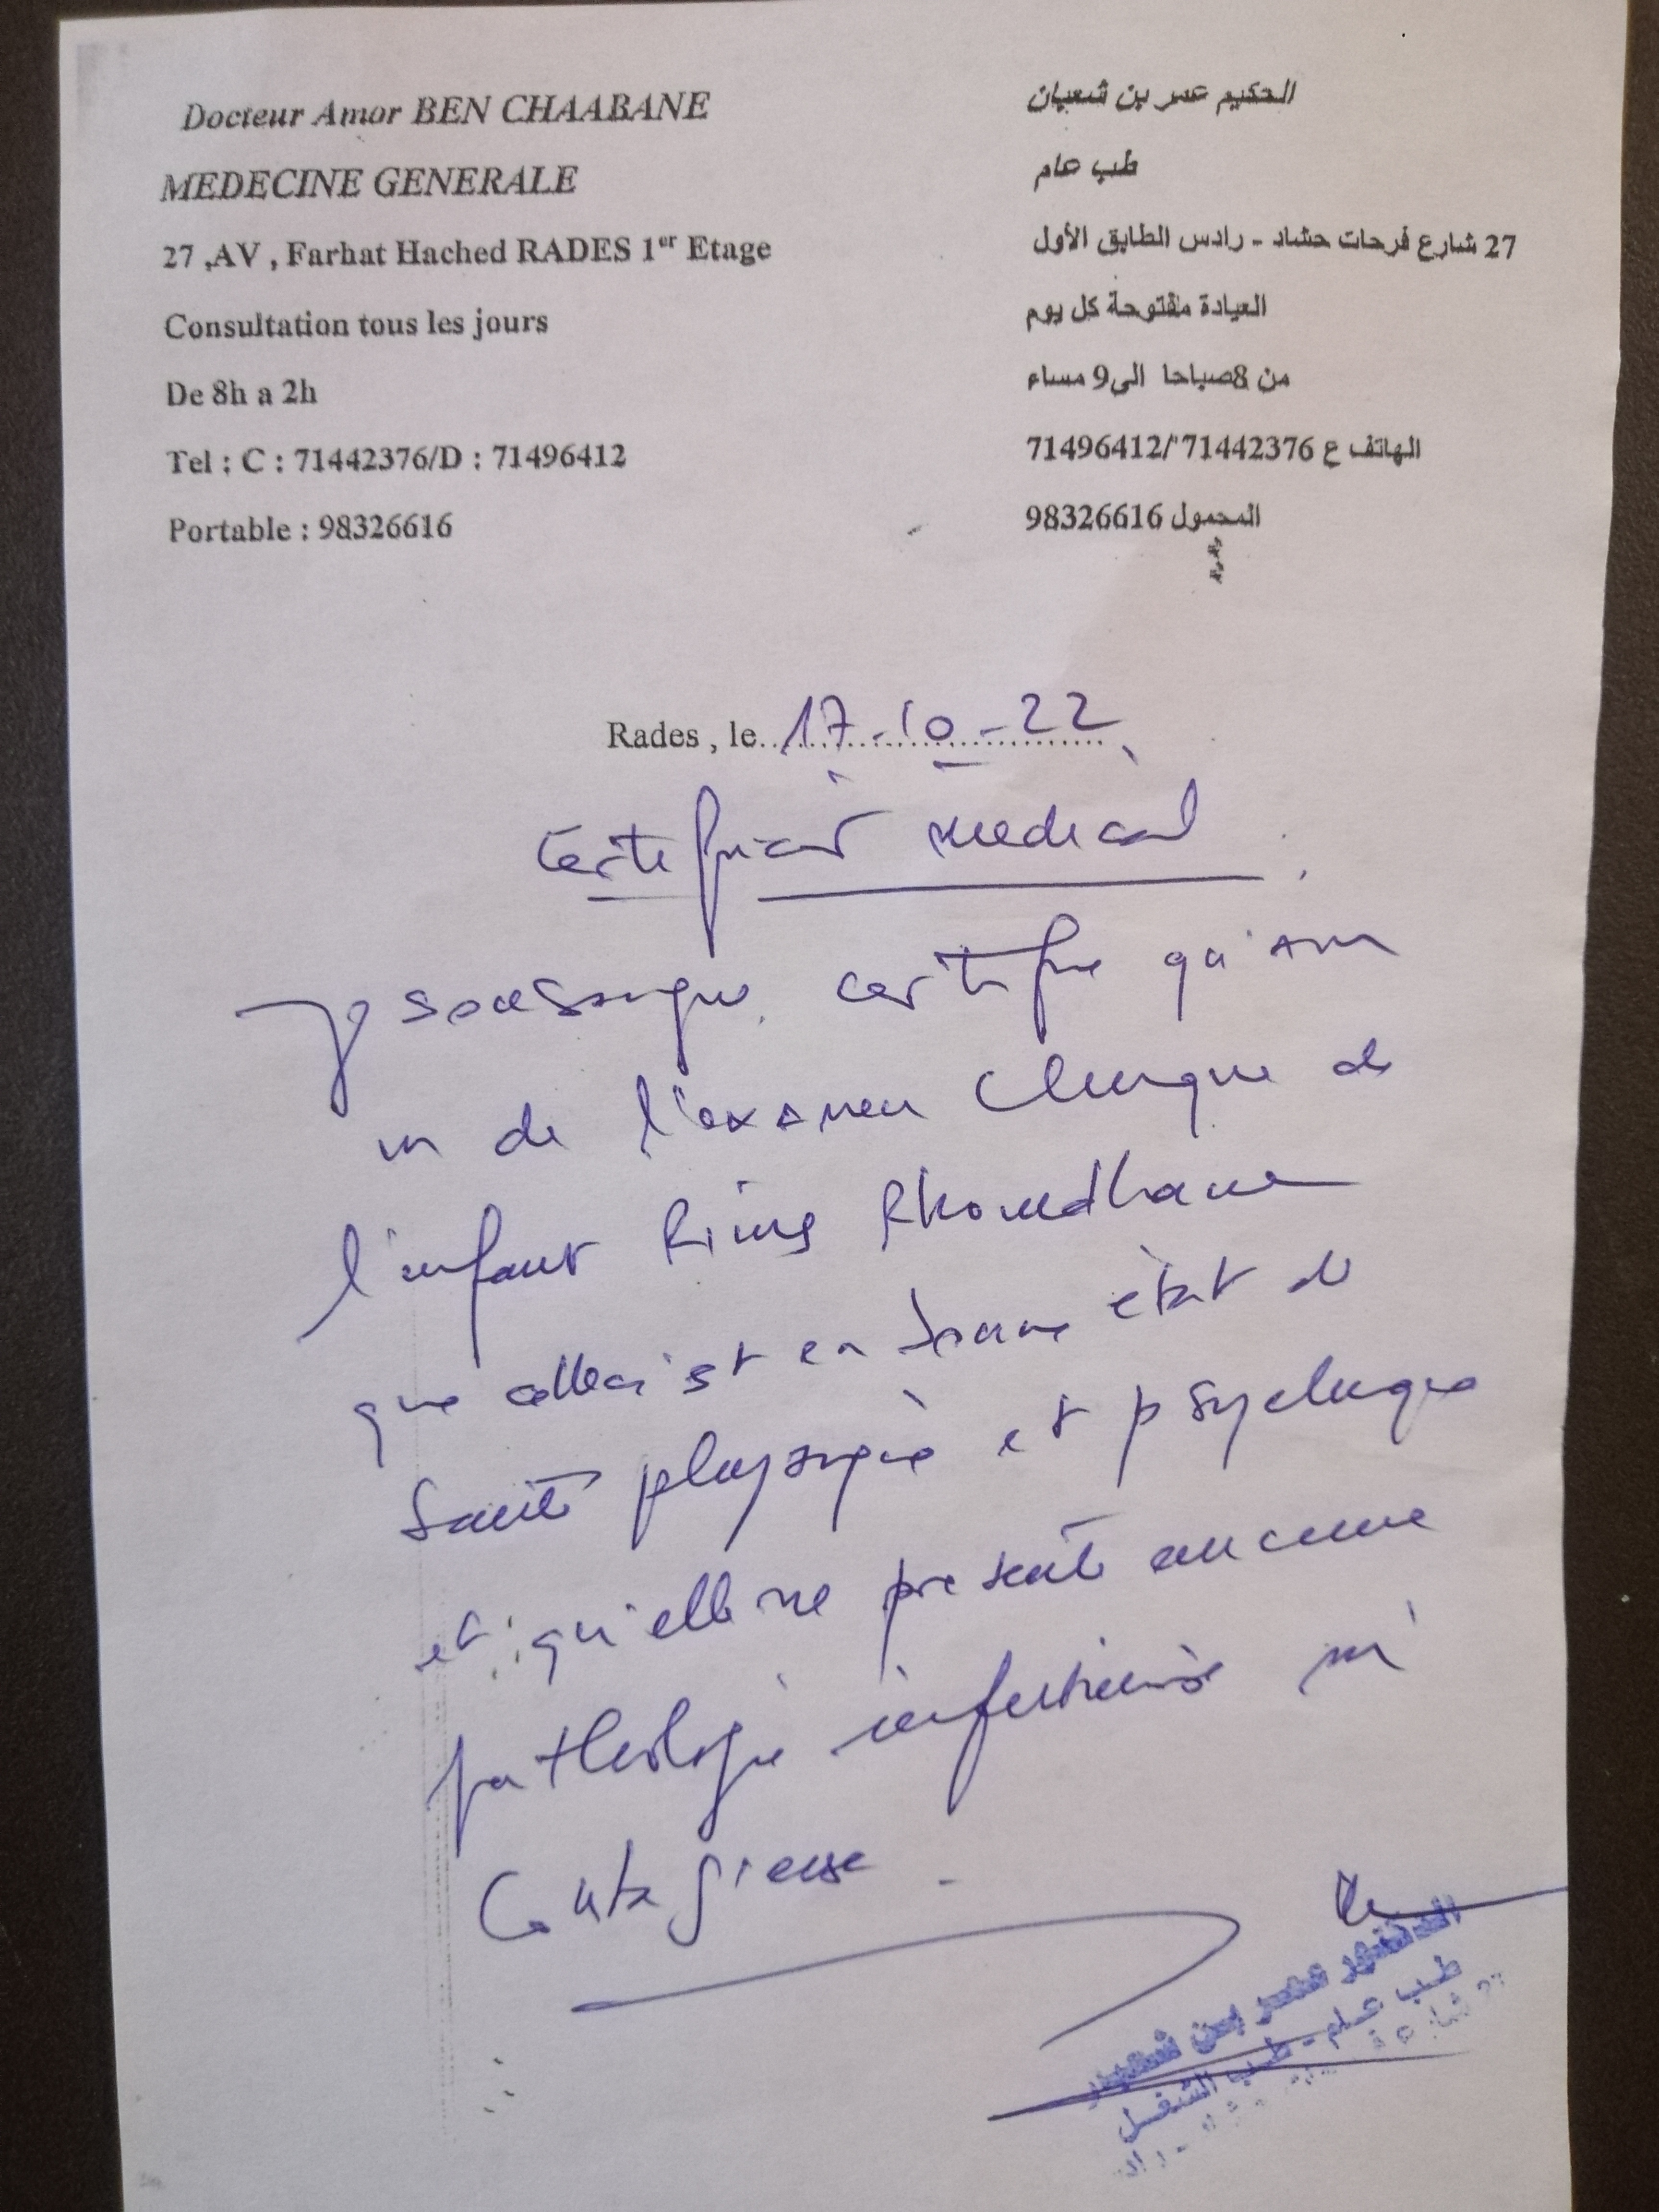 Docteur Amor BEN CHAABANE
MEDECINE GENERALE
27 ,AV , Farhat Hached RADES 1er Etage
Consultation tous les jours
De 8h a 2h
Tel : C : 71442376/D : 71496412
Portable : 98326616
الحكيم عمر بن شعبان
طب عام
27 شارع فرحات حشاد - رادس الطابق الأول
العيادة مفتوحة كل يوم
من 8صباحا الى9 مساء
الهاتف ع 71442376/71496412
المحمول 98326616
Rades , le 17-10-22
Certificat médical
Je soussigné certifie qu'au
vu de l'examen clinique de
l'enfant Rhomdhane
que celle ci est en bonne état de
Santé physique et psychique
et qu'elle ne présente aucune
pathologie infectieuse ni
Contagieuse.
عمر بن
طب عام - طب الشغل